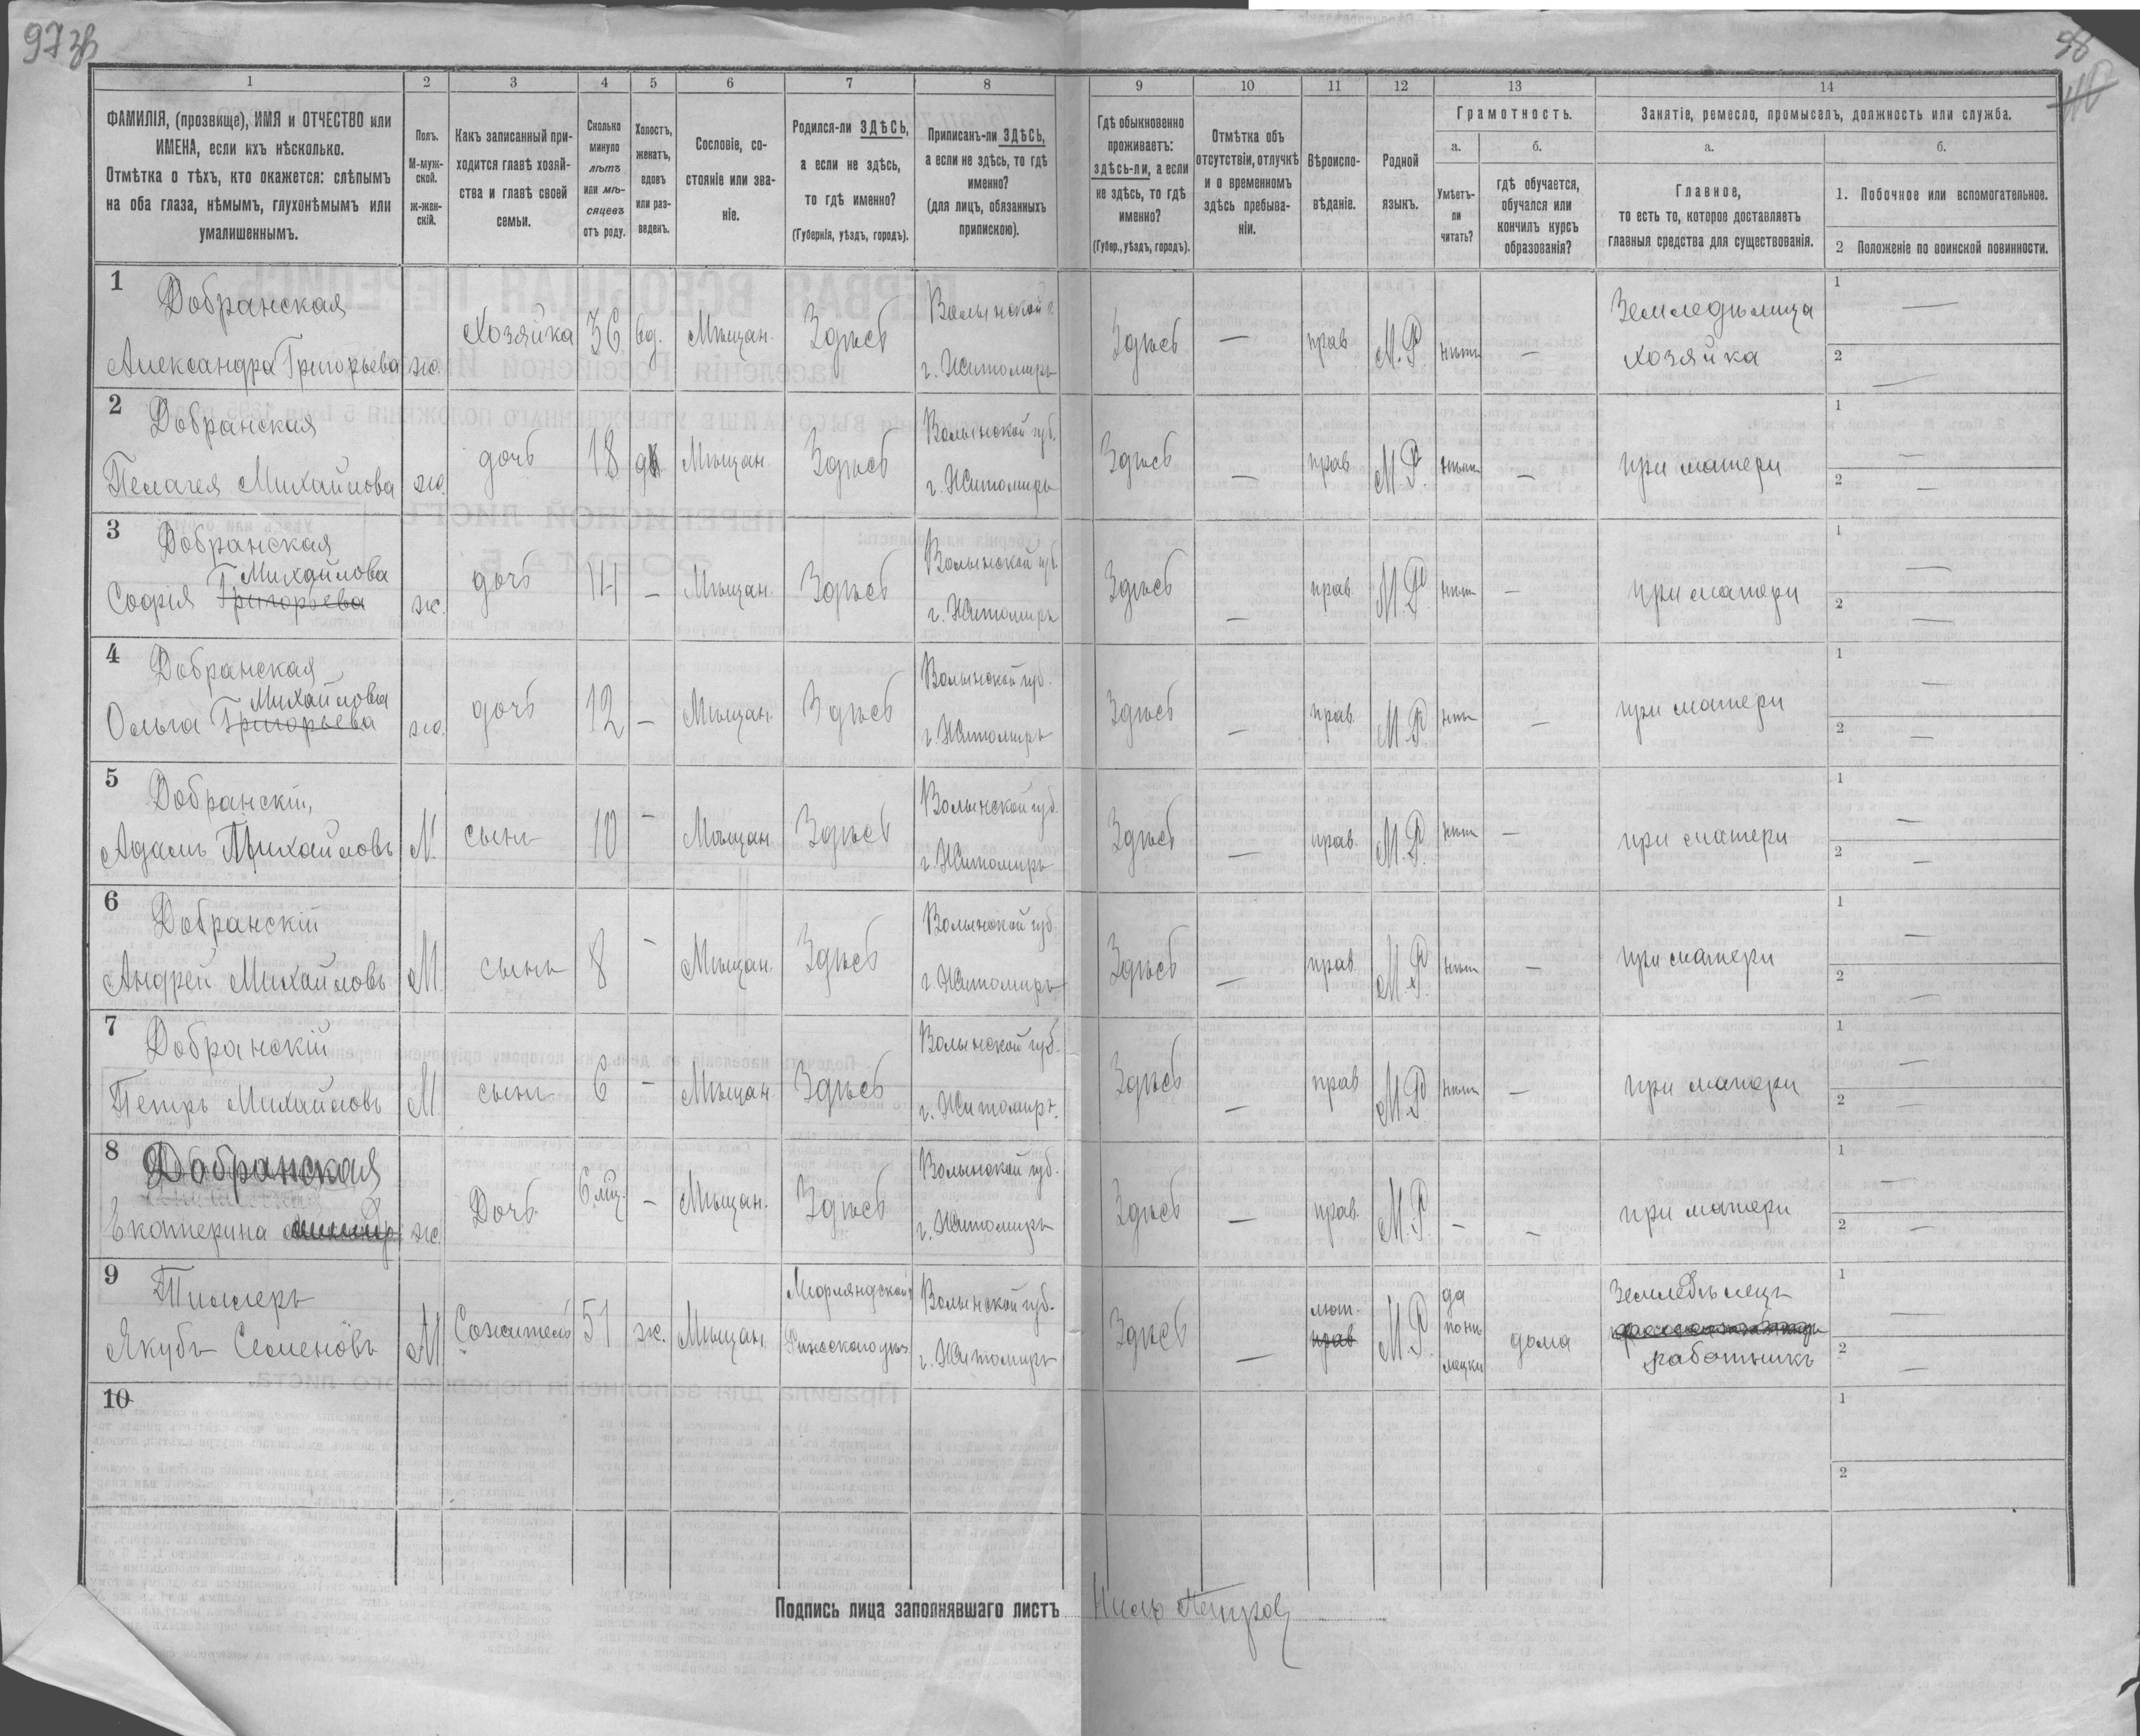 97 зв
98
1 2 3 4 5 6 7 8 9 10 11 12 13 14
ФАМИЛІЯ, (прозвище), ИМЯ и ОТЧЕСТВО или
ИМЕНА, если ихъ нѣсколько.
Отмѣтка о тѣхъ, кто окажется: слѣпымъ
на оба глаза, нѣмымъ, глухонѣмымъ или
умалишеннымъ.
Полъ.
М-муж-
ской.
ж-жен-
скій.
Какъ записанный при-
ходится главѣ хозяй-
ства и главѣ своей
семьи.
Сколько
минуло
лѣтъ
или мѣ-
сяцевъ
отъ роду.
Холостъ,
женатъ,
вдовъ
или раз-
веденъ.
Сословіе, со-
стояніе или зва-
ніе.
Родился-ли ЗДѢСЬ,
а если не здѣсь,
то гдѣ именно?
(Губернія, уѣздъ, городъ).
Приписанъ-ли ЗДѢСЬ,
а если не здѣсь, то гдѣ
именно?
(для лицъ, обязанныхъ
припискою).
Гдѣ обыкновенно
проживаетъ:
здѣсь-ли, а если
не здѣсь, то гдѣ
именно?
(Губер., уѣздъ, городъ).
Отмѣтка объ
отсутствіи, отлучкѣ
и о временномъ
здѣсь пребыва-
ніи.
Вѣроиспо-
вѣданіе.
Родной
языкъ.
Грамотность.
а.
Умѣетъ-
ли
читать?
б.
гдѣ обучается,
обучался или
кончилъ курсъ
образованія?
Занятіе, ремесло, промыселъ, должность или служба.
а.
Главное,
то есть то, которое доставляетъ
главныя средства для существованія.
б.
1. Побочное или вспомогательное.
2 Положеніе по воинской повинности.
1
Добранская
Александра Григорьева ж. Хозяйка 36 вд. Мѣщан. Здѣсь
Волынской г.
г. Житомиръ
Здѣсь — прав М.Р. нѣтъ —
Земледѣлица
хозяйка
1 —
2 —
2
Добранская
Пелагея Михайлова ж. дочь 18 Мѣщан. Здѣсь
Волынской губ.
г. Житомиръ
Здѣсь — прав М.Р. нѣтъ — при матери
1 —
2 —
3
Добранская
Михайлова
Софія Григорьева ж. дочь 14 — Мѣщан. Здѣсь
Волынской губ.
г. Житомиръ
Здѣсь — прав. М.Р. нѣтъ — при матери
1 —
2 —
4
Добранская
Михайлова
Ольга Григорьева ж. дочь 12 — Мѣщан. Здѣсь
Волынской губ.
г. Житомиръ
Здѣсь — прав. М.Р. нѣтъ — при матери
1 —
2 —
5
Добранскій,
Адамъ Михайловъ М. сынъ 10 — Мѣщан Здѣсь
Волынской губ.
г. Житомиръ
Здѣсь — прав. М.Р. нѣтъ — при матери
1 —
2 —
6
Добранскій
Андрей Михайловъ М. сынъ 8 — Мѣщан. Здѣсь
Волынской губ.
г. Житомиръ
Здѣсь — прав М.Р. нѣтъ — при матери
1 —
2 —
7
Добранскій
Петръ Михайловъ М. сынъ 6 — Мѣщан. Здѣсь
Волынской губ.
г. Житомиръ.
Здѣсь — прав М.Р. нѣтъ — при матери
1 —
2 —
8
Добранская
Екатерина ж. Дочь 6 мц. — Мѣщан. Здѣсь
Волынской губ.
г. Житомиръ
Здѣсь — прав. М.Р. — — при матери
1 —
2 —
9
Якубъ Семеновъ М Сожитель 51 ж. Мѣщан.
Волынской губ.
г. Житомиръ
Здѣсь —
лют.
прав
М.Р.
да
дома
Земледѣлецъ
работникъ
1 —
2 —
10
1
2
Подпись лица заполнявшаго листъ